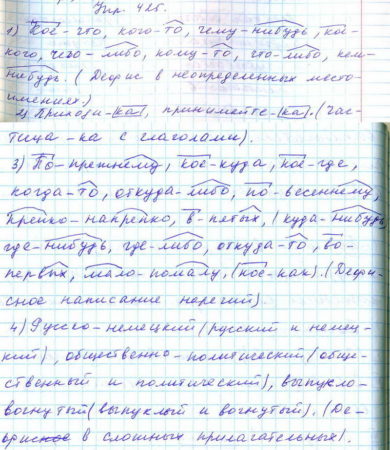 Упр. 425.
1) Кое-что, кого-то, чему-нибудь, кое-
кого, чего-либо, кому-то, что-либо, кем-
нибудь. (Дефис в неопределенных место-
имениях.)
2) Приходи-ка, принимайте-ка. (Час-
тица -ка с глаголами).
3) По-прежнему, кое-куда, кое-где,
когда-то, откуда-либо, по-весеннему,
крепко-накрепко, в-пятых, (куда-нибудь,
где-нибудь, где-либо, откуда-то, во-
первых, мало-помалу, (кое-как). (Дефи-
сное написание наречий)
4) Русско-немецкий (русский и немец-
кий), общественно-политический (обще-
ственный и политический), выпукло-
вогнутый (выпуклый и вогнутый). (Де-
фис в сложных прилагательных).